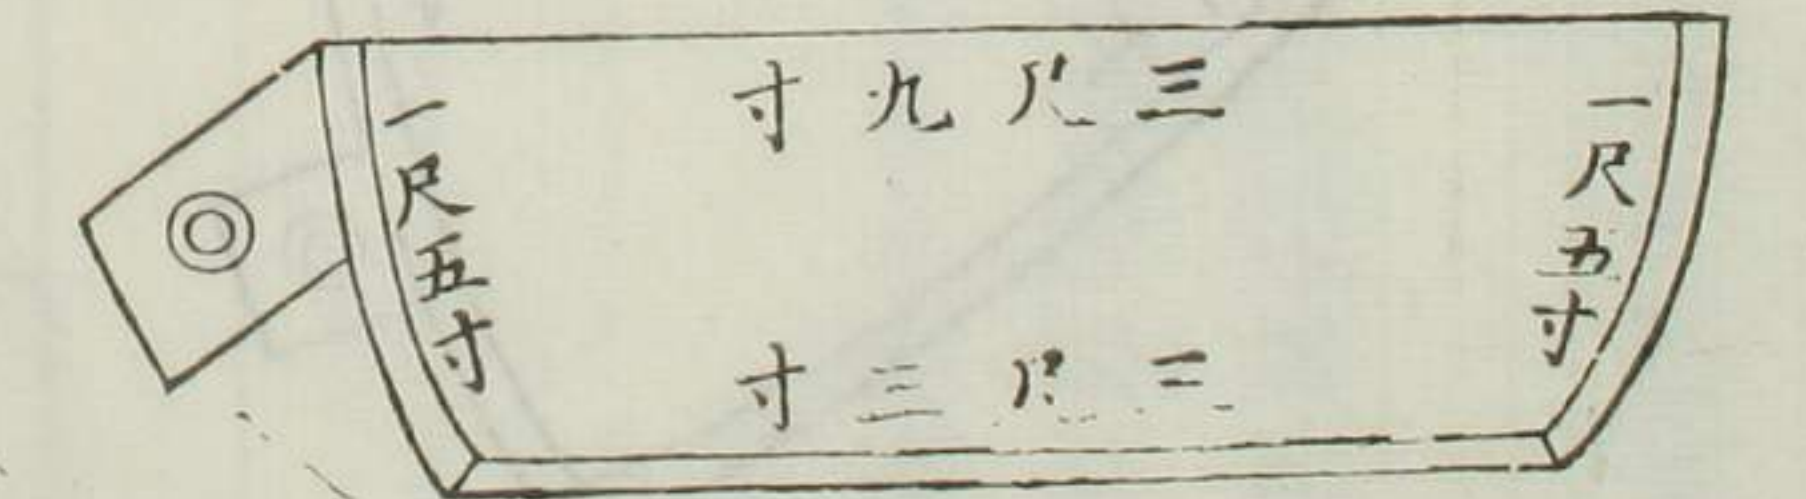 三尺九寸
一尺五寸
一尺五寸
三尺三寸